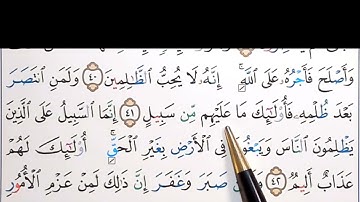 وَأَصْلَحَ فَأَجْرُهُۥ عَلَى ٱللَّهِ ۚ إِنَّهُۥ لَا يُحِبُّ ٱلظَّـٰلِمِينَ ﴿٤٠﴾ وَلَمَنِ ٱنتَصَرَ
بَعْدَ ظُلْمِهِۦ فَأُو۟لَـٰٓئِكَ مَا عَلَيْهِم مِّن سَبِيلٍ ﴿٤١﴾ إِنَّمَا ٱلسَّبِيلُ عَلَى ٱلَّذِينَ
يَظْلِمُونَ ٱلنَّاسَ وَيَبْغُونَ فِى ٱلْأَرْضِ بِغَيْرِ ٱلْحَقِّ ۚ أُو۟لَـٰٓئِكَ لَهُمْ
عَذَابٌ أَلِيمٌ ﴿٤٢﴾ صَبَرَ وَغَفَرَ إِنَّ ذَٰلِكَ لَمِنْ عَزْمِ ٱلْأُمُورِ